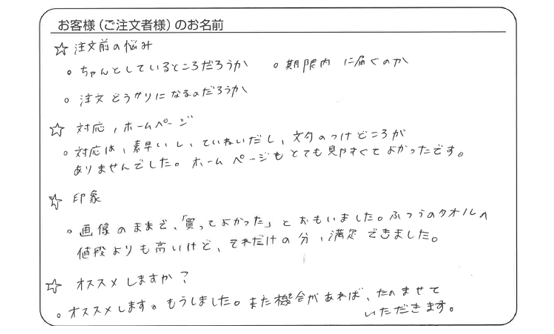 お客様（ご注文者様）のお名前
☆ 注文前の悩み
。ちゃんとしているところだろうか 。期限内に届くのか
。注文どうりになるのだろうか
☆ 対応，ホームページ
。対応は、素早いし、ていねいだし、文句のつけどころが
ありませんでした。ホームページもとても見やすくてよかったです。
☆ 印象
。画像のままで、「買ってよかった」とおもいました。ふつうのタオルへ
値段よりも高いけど、それだけの分、満足できました。
☆ オススメしますか？
。オススメします。もうしました。また機会があれば、たのませて
いただきます。